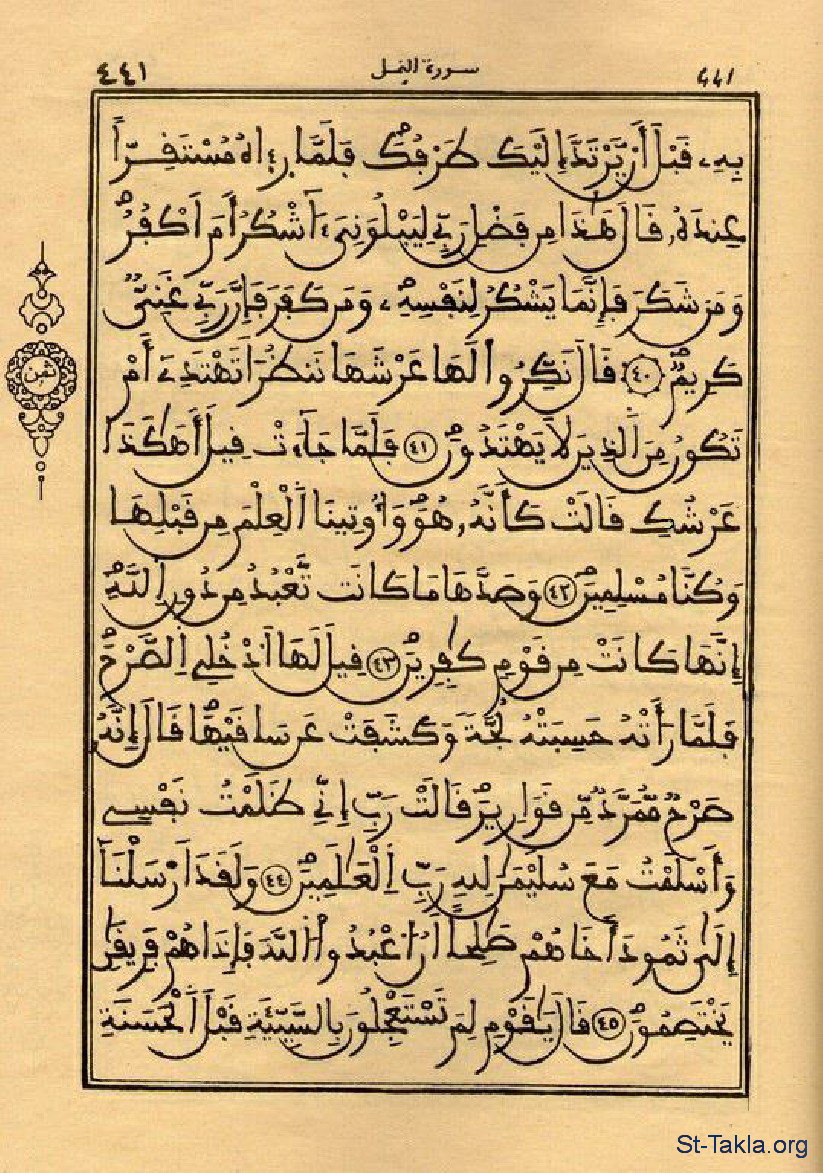 ٤٤١ سورة النمل ٤٤١
بِهِۦ قَبْلَ أَنْ يَّرْتَدَّ إِلَيْكَ طَرْفُكَۖ فَلَمَّا رَءَاهُ مُسْتَقِرّاً
عِندَهُۥ قَالَ هَٰذَا مِن فَضْلِ رَبِّے لِيَبْلُوَنِيَ ءَآشْكُرُ أَمَ اَكْفُرُۖ
وَمَن شَكَرَ فَإِنَّمَا يَشْكُرُ لِنَفْسِهِۦۖ وَمَن كَفَرَ فَإِنَّ رَبِّے غَنِيّٞ
كَرِيمٞۖ ٤٠ قَالَ نَكِّرُواْ لَهَا عَرْشَهَا نَنظُرَ اَتَهْتَدِےٓ أَمْ
تَكُونُ مِنَ اَلذِينَ لَا يَهْتَدُونَۖ ٤١ فَلَمَّا جَآءَتْ قِيلَ أَهَٰكَذَا
عَرْشُكِ قَالَتْ كَأَنَّهُۥ هُوَۖ وَأُوتِينَا اَلْعِلْمَ مِن قَبْلِهَا
وَكُنَّا مُسْلِمِينَۖ ٤٢ وَصَدَّهَا مَا كَانَت تَّعْبُدُ مِن دُونِ اِللَّهِۖ
إِنَّهَا كَانَتْ مِن قَوْمٖ كَٰفِرِينَۖ ٤٣ قِيلَ لَهَا اَدْخُلِے اِلصَّرْحَۖ
فَلَمَّا رَأَتْهُ حَسِبَتْهُ لُجَّةٗ وَكَشَفَتْ عَن سَاقَيْهَاۖ قَالَ إِنَّهُۥ
صَرْحٞ مُّمَرَّدٞ مِّن قَوَارِيرَۖ قَالَتْ رَبِّ إِنِّے ظَلَمْتُ نَفْسِے
وَأَسْلَمْتُ مَعَ سُلَيْمَٰنَ لِلهِ رَبِّ اِلْعَٰلَمِينَۖ ٤٤ وَلَقَدَ اَرْسَلْنَآ
إِلَىٰ ثَمُودَ أَخَاهُمْ صَٰلِحاً اَنُ اُعْبُدُواْ اُللَّهَ فَإِذَا هُمْ فَرِيقَٰنِ
يَخْتَصِمُونَۖ ٤٥ قَالَ يَٰقَوْمِ لِمَ تَسْتَعْجِلُونَ بِالسَّيِّئَةِ قَبْلَ اَلْحَسَنَةِ
ثمن
St-Takla.org